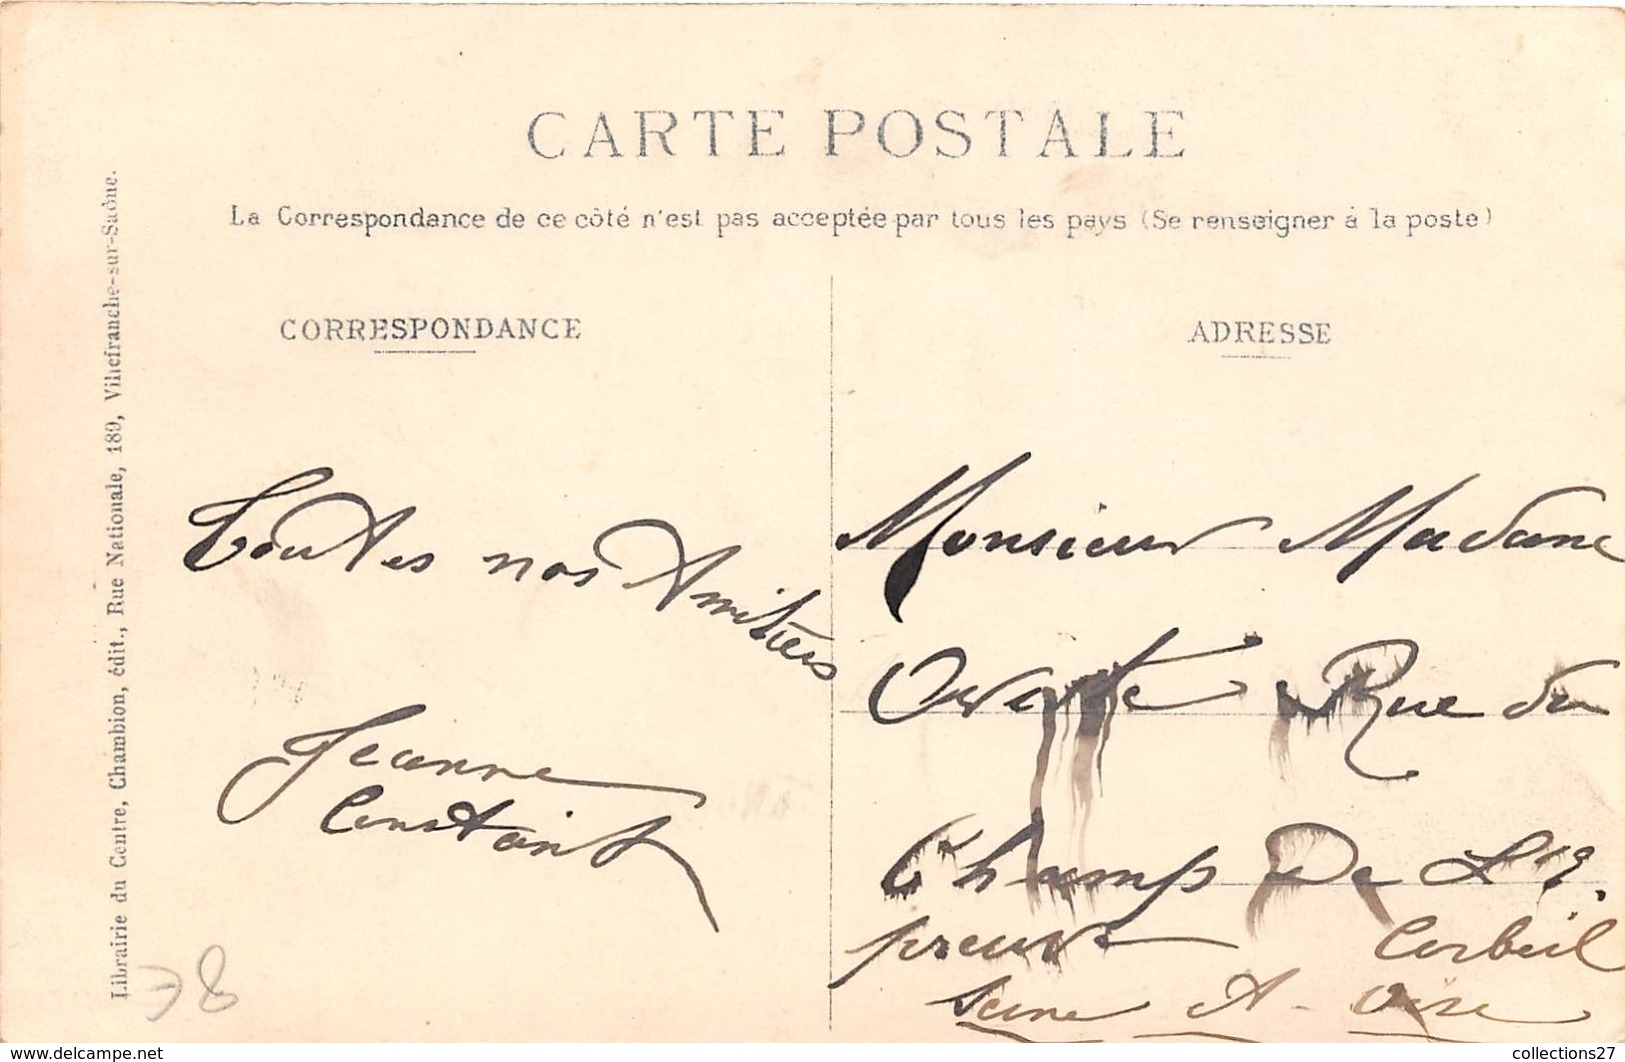 CARTE POSTALE
La Correspondance de ce côté n'est pas acceptée par tous les pays (Se renseigner à la poste)
CORRESPONDANCE
Toutes nos Amitiers
Jeanne
Constant
ADRESSE
Monsieur Madame
Rue du
Champ De L'é
preuve Corbeil
Seine A - Oise
Librairie du Centre, Chambion, édit., Rue Nationale, 189, Villefranche-sur-Saône.
78
collections27